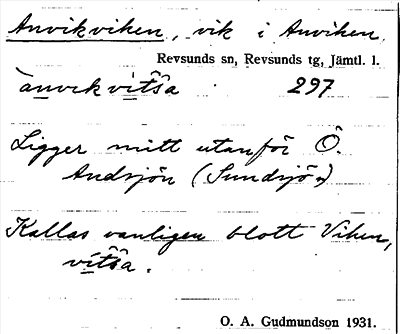 Anvikviken, vik i Anviken
Revsunds sn, Revsunds tg, Jämtl. l.
ànvɩkvit̂ŝa 297
Ligger mitt utanför Ö.
Andsjön (Sundsjö)
Kallas vanligen blott Viken,
vit̂ŝa.
O. A. Gudmundson 1931.